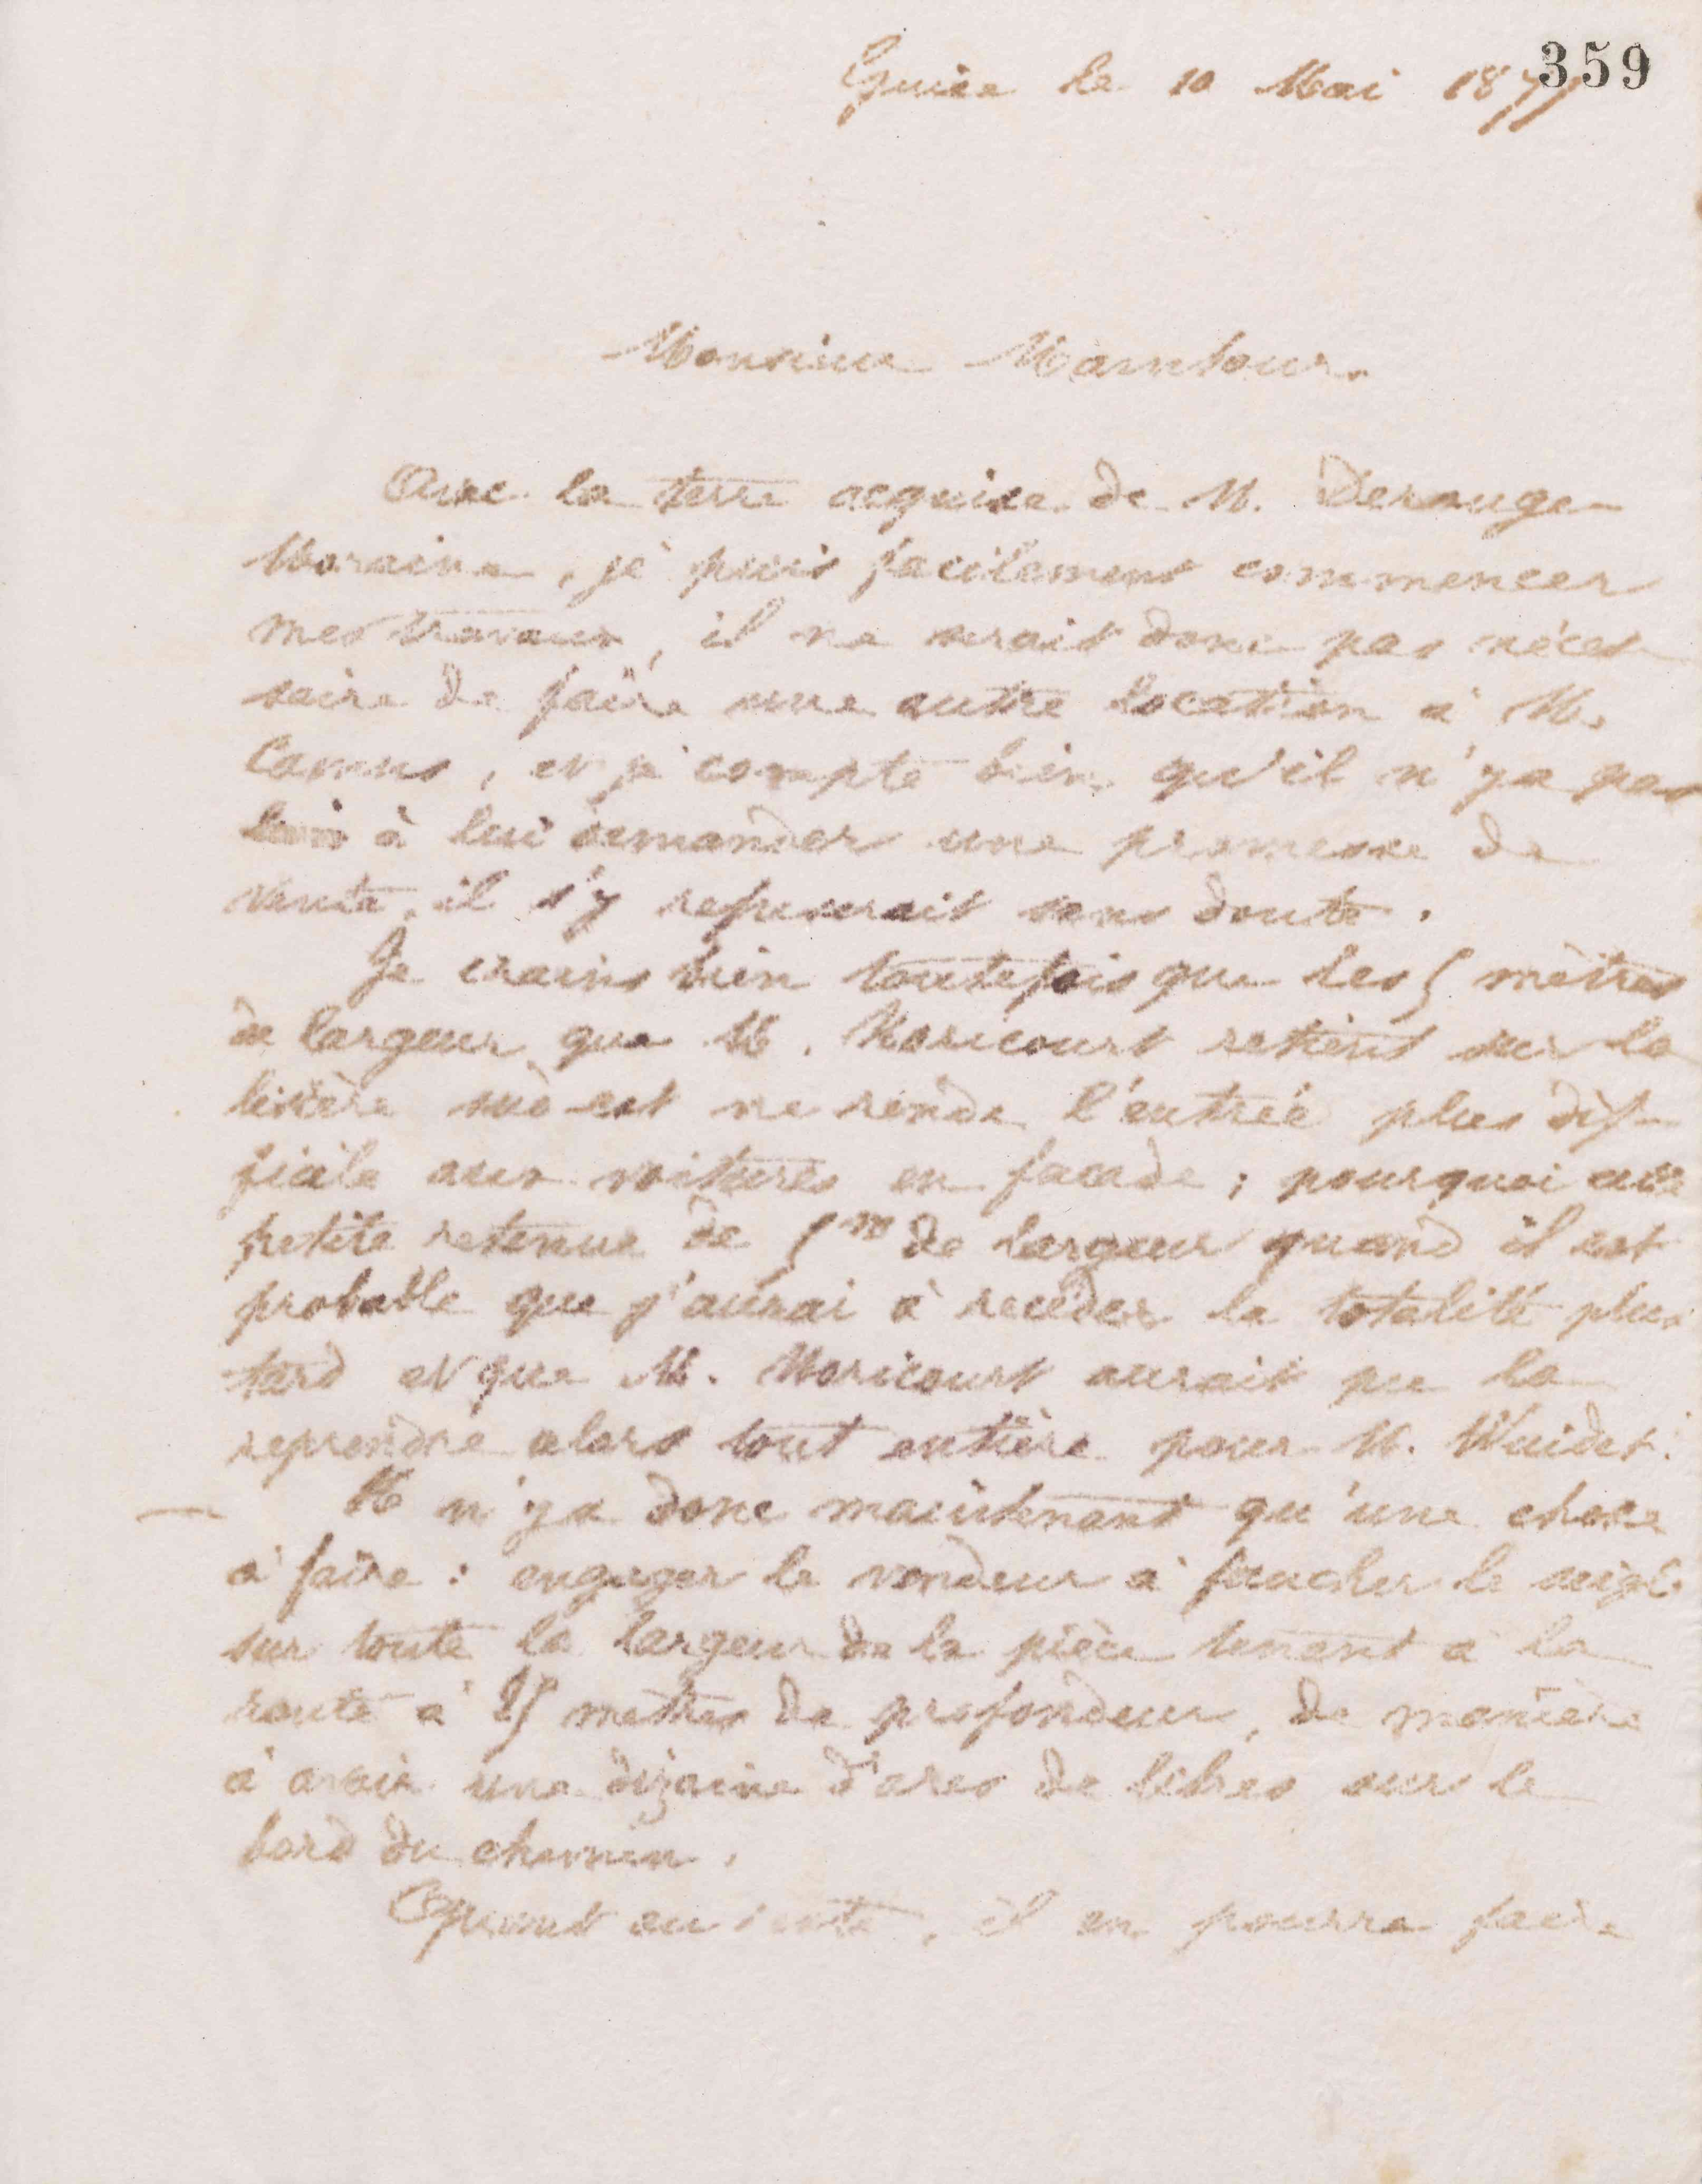 359
Guise le 10 Mai 1877
Monsieur Maintour.
Avec la terre acquise de M. Derouge
Moraine, je puis facilement commencer
mes travaux, il ne serait donc pas néces
saire de faire une autre location à M.
Camus, et je compte bien qu'il n'y a pas
lieu à lui demander une promesse de
vente, il s'y refuserait sans doute.
Je crains bien toutefois que les 5 mètres
de largeur que M. Noricourt retient sur la
lisière sud est ne rende l'entrée plus dif
ficile aux voitures en façade ; pourquoi cette
petite retenue de 5m de largeur quand il est
probable que j'aurai à recéder la totalité plus
tard et que M. Noricourt aurait pu la
reprendre alors tout entière pour M. Waidet.
Il n'y a donc maintenant qu'une chose
à faire : engager le vendeur à faucher le seigle
sur toute la largeur de la pièce tenant à la
route à 25 mètres de profondeur, de manière
à avoir une dizaine d'ares de libres sur le
bord du chemin.
Quant au reste, il en pourra faire